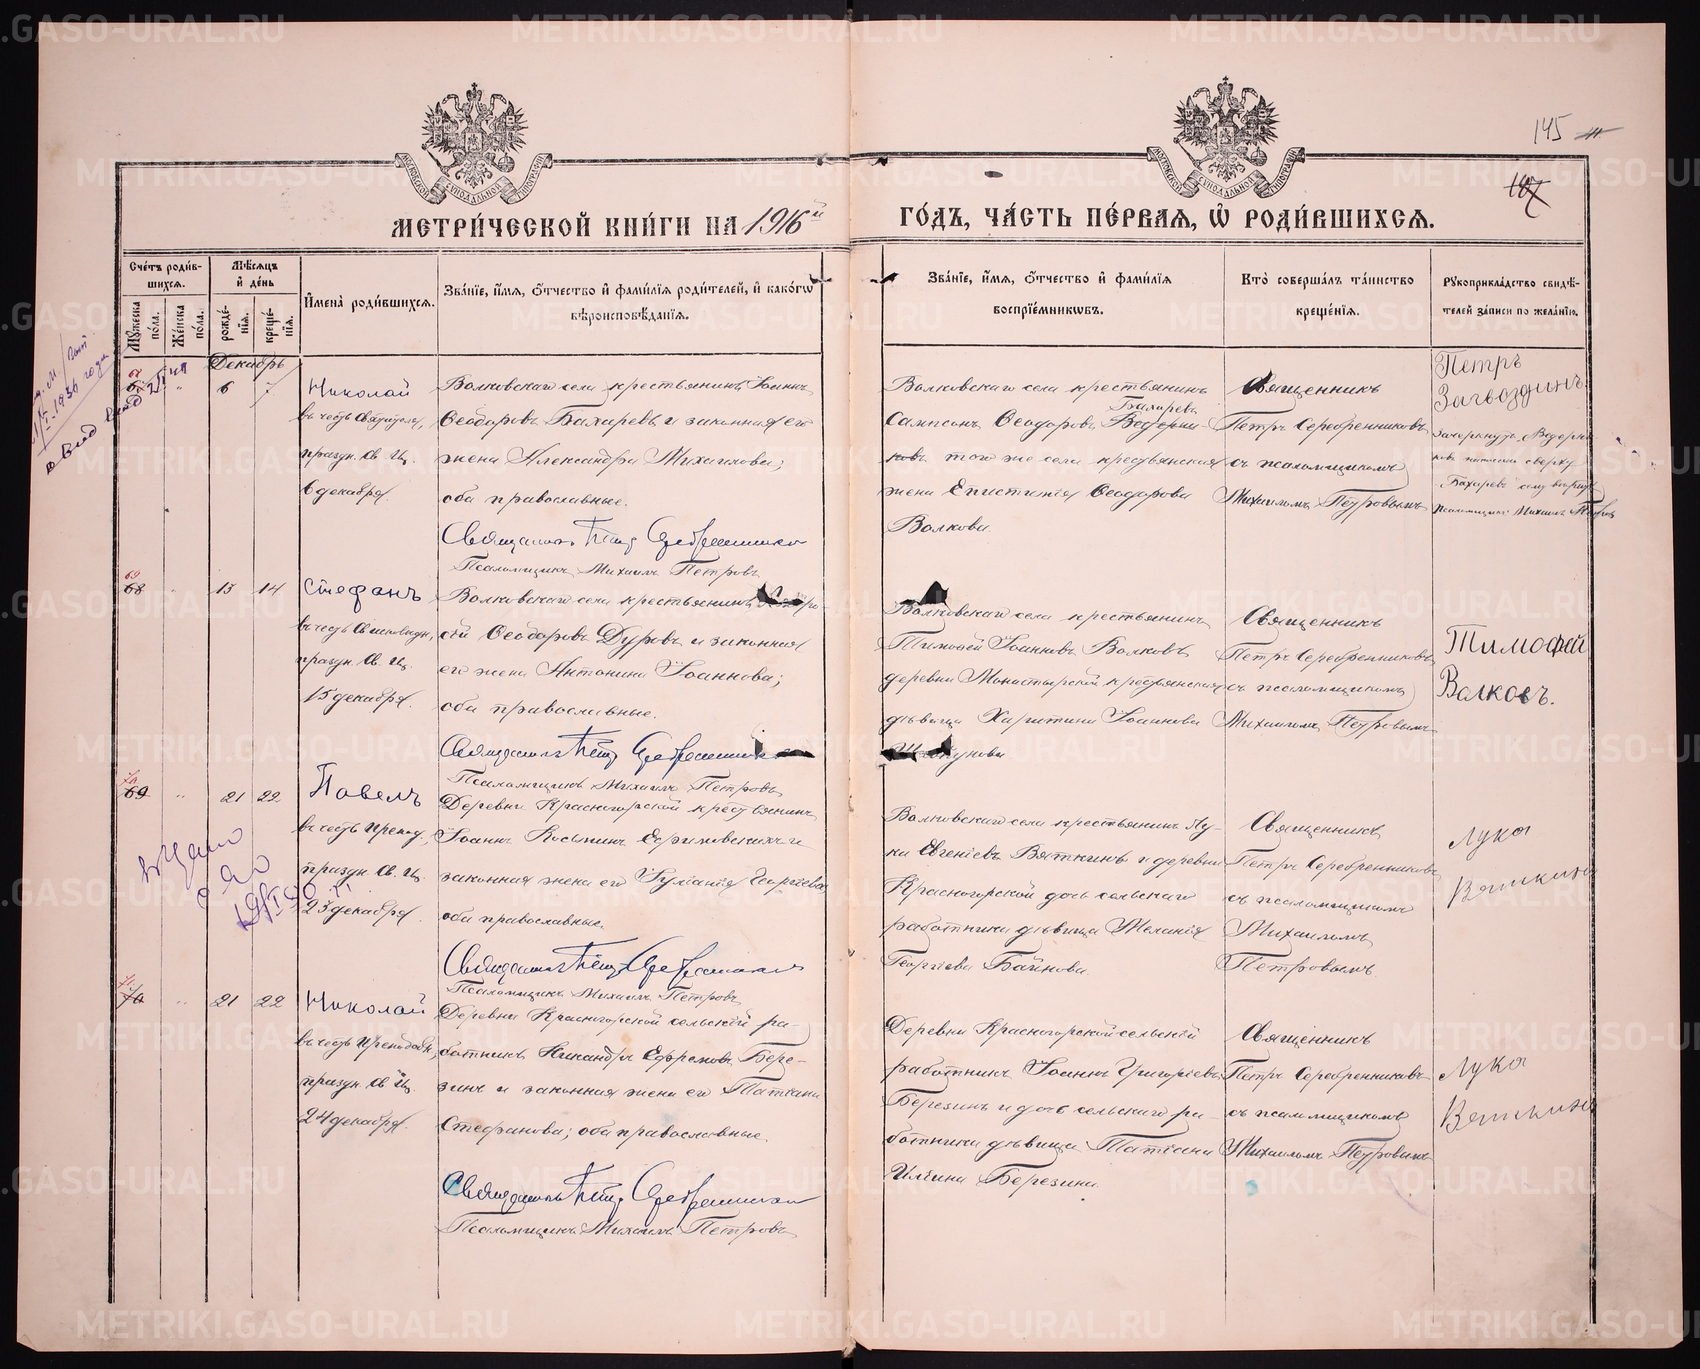 METRIKI.GASO-URAL.RU
145
187
МОСКОВСКОЙ СѴНОДАЛЬНОЙ ТИПОГРАФІИ
МОСКОВСКОЙ СѴНОДАЛЬНОЙ ТИПОГРАФІИ
МЕТРИ́ЧЕСКОЙ КНИ́ГИ НА 1916й
ГО́ДЪ, ЧА́СТЬ ПЕ́РВАЯ, Ѽ РОДИ́ВШИХСЯ.
Сче́тъ роди́в-
шихся.
Мѣ́сяцъ
и́ де́нь
Му́жеска
по́ла.
Же́нска
по́ла.
рожде́-
нїя.
креще́-
нїя.
И҆мена̀ роди́вшихся.
Зва́нїе, и҆́мя, ѻ҆́тчество и҆ фами́лїя роди́телей, и҆ како́гѡ
вѣроисповѣ́данїя.
Зва́нїе, и҆́мя, ѻ҆́тчество и҆ фами́лїя
воспрїе́мникѡвъ.
Кто̀ соверша́лъ та́инство
креще́нїя.
Рукоприкла́дство свидѣ́-
телей за́писи по жела́нїю.
Декабрь
6
7
Николай
въ честь Святителя,
праздн. Св. Ц.
6 декабря.
Волковскаго села крестьянинъ Іоаннъ
Ѳеодоровъ Бахаревъ и законная его
жена Александра Михаилова;
оба православные.
Священникъ Петръ Серебренниковъ
Псаломщикъ Михаилъ Петровъ
Волковскаго села крестьянинъ
Бахаревъ
Сампсонъ Ѳеодоровъ Ведерни-
ковъ того же села крестьянская
жена Епистимія Ѳеодорова
Волкова.
Священникъ
Петръ Серебренниковъ
съ псаломщикомъ
Михаиломъ Петровымъ
Петръ
Загвоздинъ.
зачеркнуто „Ведерни-
ковъ" написано сверху
„Бахаревъ" сему верить
Псаломщикъ Михаилъ Петровъ
69
68
13
14
Стефанъ
въ честь Св. исповѣдн.,
праздн. Св. Ц.
15 декабря.
Волковскаго села крестьянинъ
Ѳеодоровъ Дуровъ и законная
его жена Антонина Іоаннова;
оба православные.
Священникъ Петръ Серебренниковъ
Псаломщикъ Михаилъ Петровъ
Волковскаго села крестьянинъ
Тимоѳей Іоанновъ Волковъ
деревни Монастырской крестьянская
дѣвица Харитина Іоаннова
Священникъ
Петръ Серебренниковъ
съ псаломщикомъ
Михаиломъ Петровымъ
Тимофей
Волковъ.
70
69
21
22
Павелъ
въ честь Препод.
праздн. Св. Ц.
23 декабря.
Деревни Красногорской крестьянинъ
Іоаннъ Косьминъ Ефимовскихъ и
законная жена его Іуліанія Георгіева
оба православные.
Священникъ Петръ Серебренниковъ
Псаломщикъ Михаилъ Петровъ
Волковскаго села крестьянинъ Лу-
ка Евгеніевъ Вяткинъ и деревни
Красногорской дочь сельскаго
работника дѣвица Меланія
Георгіева Баннова.
Священникъ
Петръ Серебренниковъ
съ псаломщикомъ
Михаиломъ
Петровымъ.
Лука
Вяткинъ
71
70
21
22
Николай
въ честь Преподобн.,
праздн. Св. Ц.
24 декабря.
Деревни Красногорской сельскій ра-
ботникъ Никандръ Ефремовъ Бере-
зинъ и законная жена его Татіана
Стефанова; оба православные.
Священникъ Петръ Серебренниковъ
Псаломщикъ Михаилъ Петровъ
Деревни Красногорской сельскій
работникъ Іоаннъ Григоріевъ
Березинъ и дочь сельскаго ра-
ботника дѣвица Татіана
Иліина Березина.
Священникъ
Петръ Серебренниковъ
съ псаломщикомъ
Михаиломъ Петровымъ
Лука
Вяткинъ